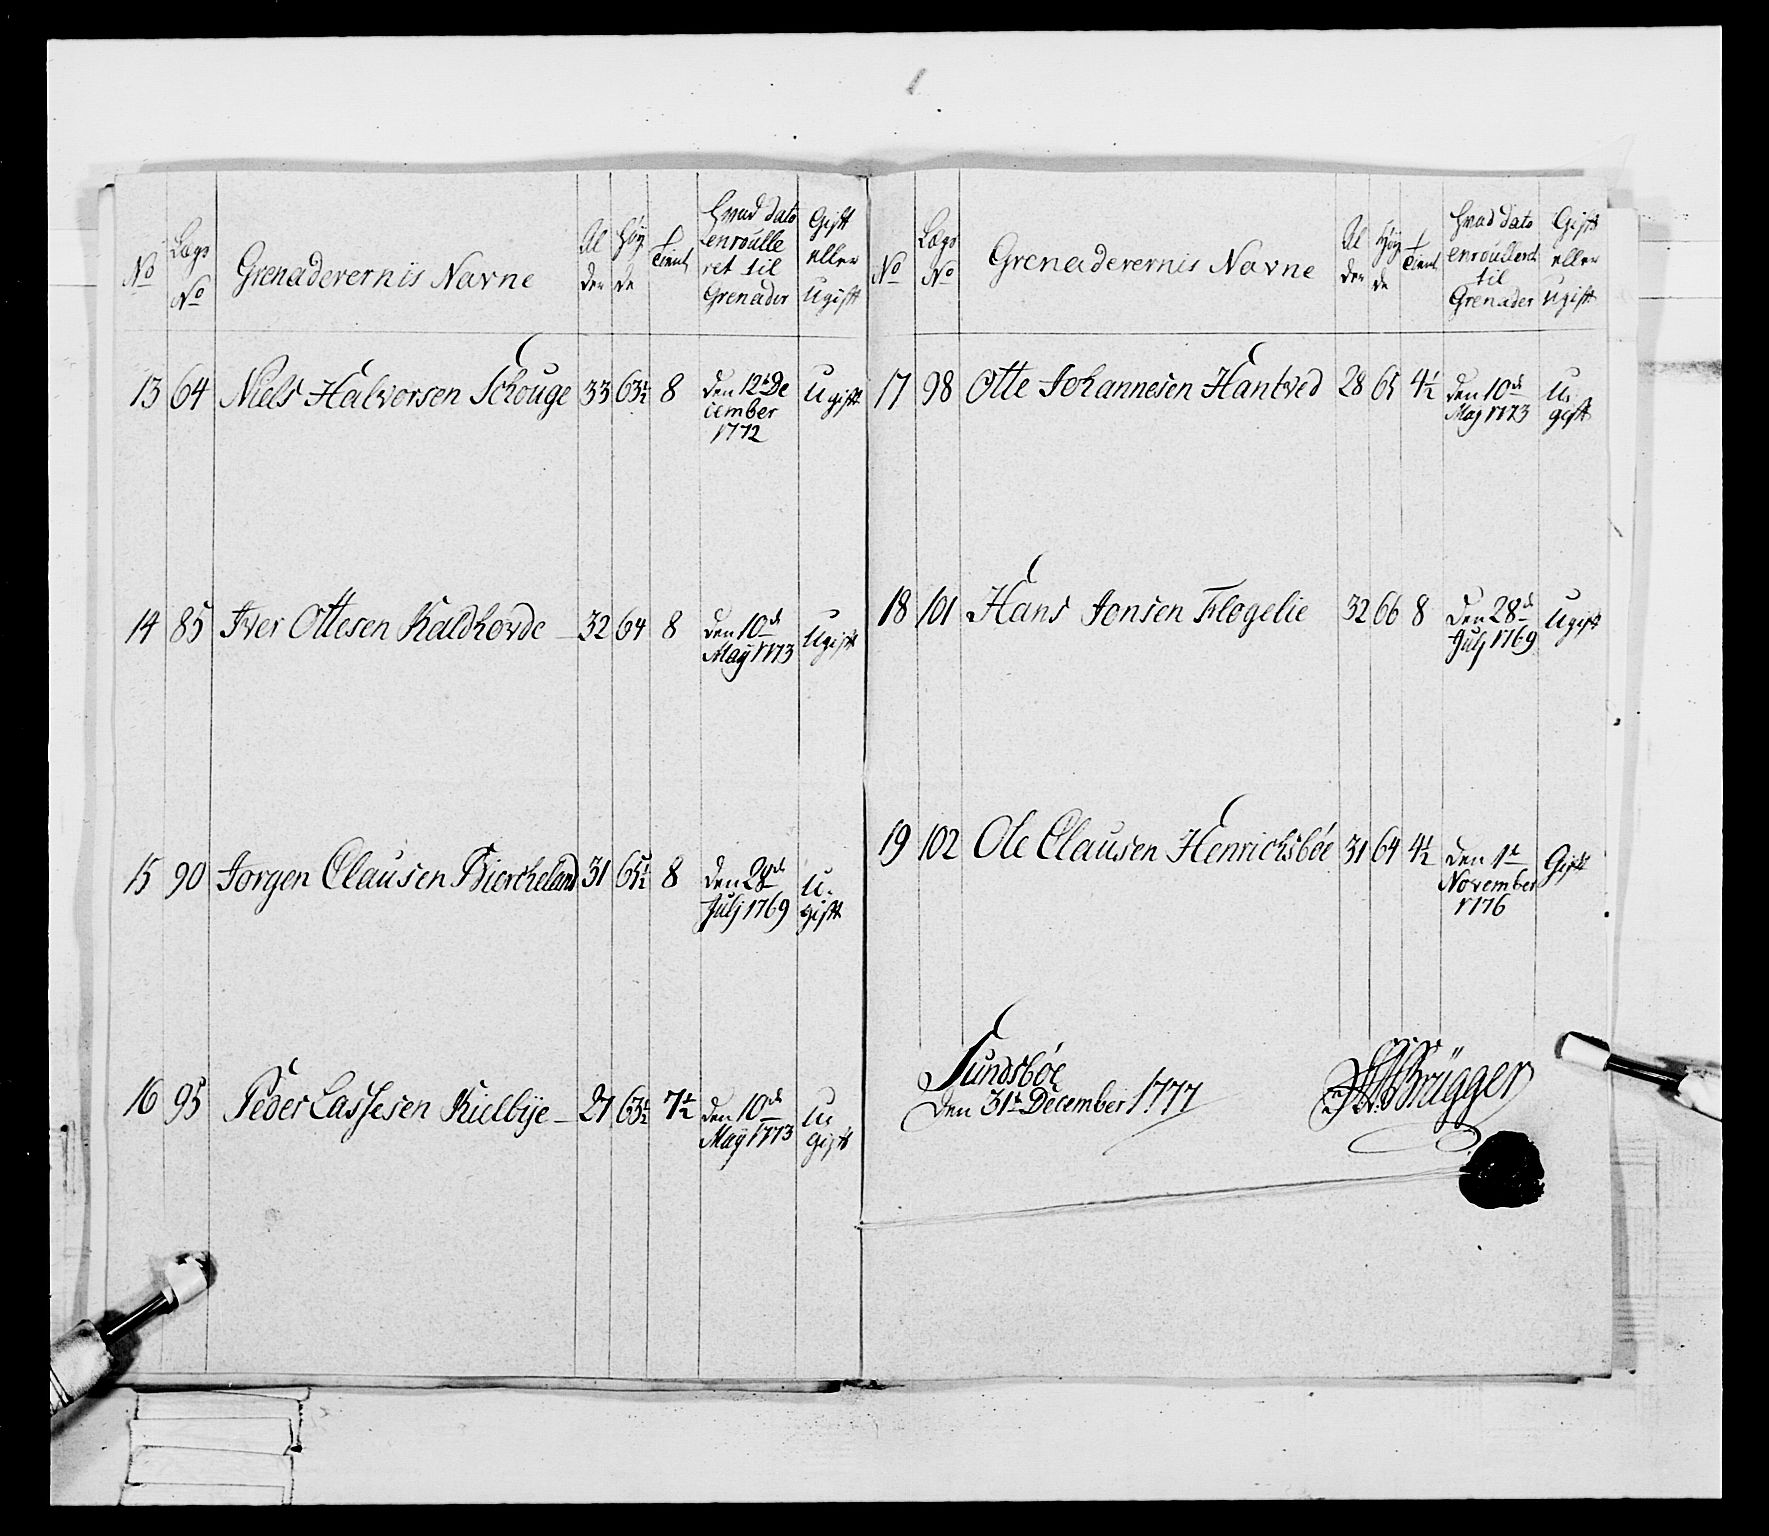 No Lægs No Grenaderernis Navne Alder Høyde Tient Hvad dato enroulleret til Grenader Gift eller Ugift
13 64 Niels Halvorsen Schouge 33 63½ 8 den 12t De Ugift
cember
1772
14 85 Iver Ottesen Kaldhovde – 32 64 8 den 10de Ugift
Maÿ 1773
15 90 Jorgen Clausen Biercheland 31 65½ 8 den 28de U.
Julj 1769 gift
16 95 Peder Lassesen Kielbÿe – 27 63½ 7½ den 10de U,
Maÿ 1773 gift
No Lægs No Grenaderernis Navne Alder Høyde Tient Hvad dato enroullert til Grenader Gift eller Ugift
17 98 Otte Johannesen Hantved 28 65 4½ den 10de U,
Maj 1773 gift
18 101 Hans Jonsen Flogelie 32 66 8 den 28de Ugift
Julj 1769
19 102 Ole Clausen Henrichsbøe 31 64 4½ den 1t Gift
November
1776
Sundsbøe
den 31t December 1777
Brügger